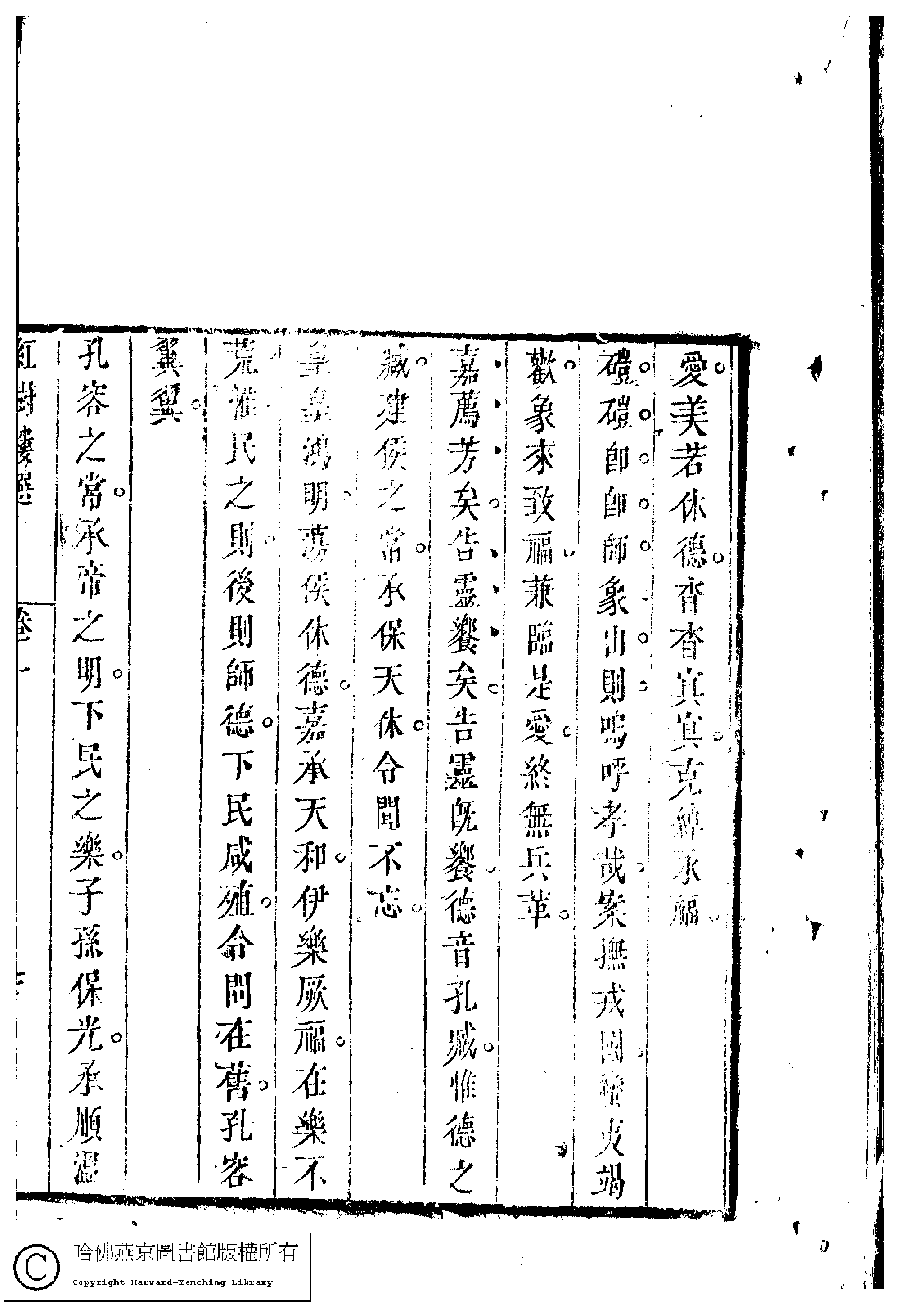 愛美若休德杳杳冥冥克綽永福
磑磑即即師象山則嗚呼孝哉案撫戎國蠻夷竭
歡象來致福兼臨是愛終無兵革
嘉薦芳矣告靈饗矣告靈既饗德音孔臧惟德之
臧建侯之常承保天休令問不忘
皇皇鴻明蕩侯休德嘉承天和伊樂厥福在樂不
荒惟民之則浚則師德下民咸殖令問在舊孔容
翼翼
孔容之常承帝之明下民之樂子孫保光承順溫
紅樹樓選
卷一
哈佛燕京圖書館版權所有
Copyright Harvard-Yenching Library